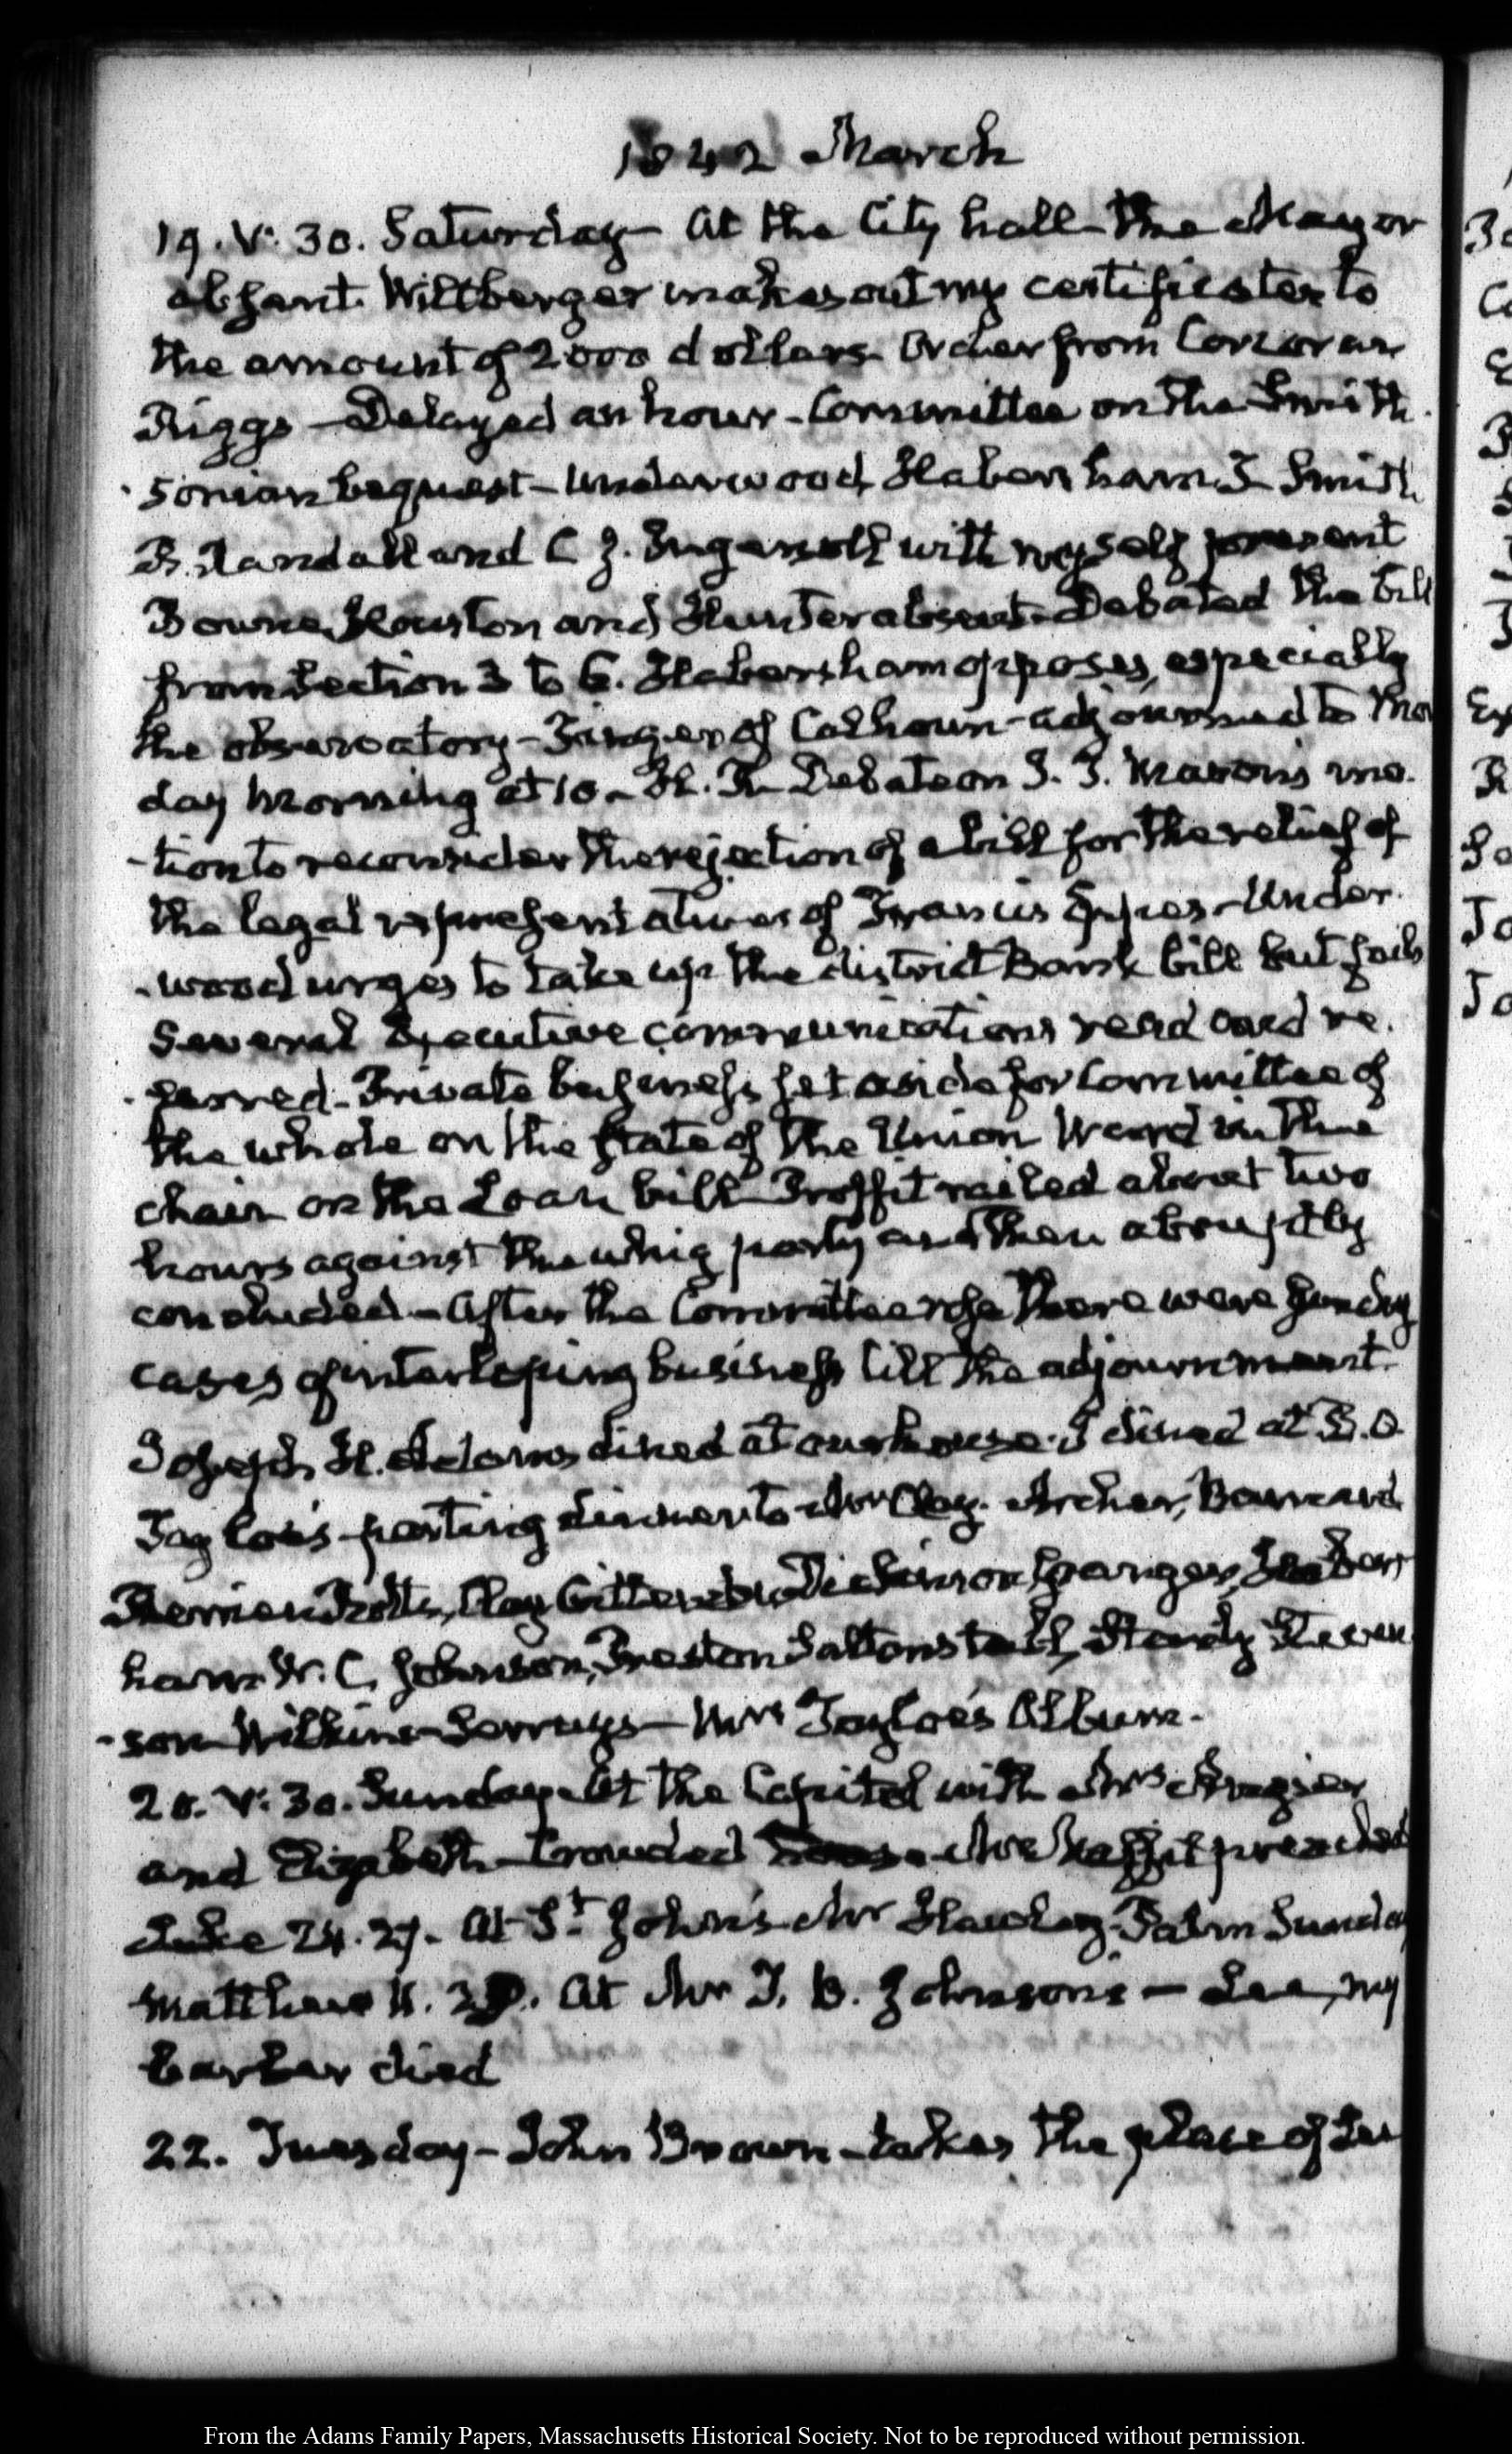 1842 March
19. V: 30. Saturday - At the City hall - the Mayor
absent. Wiltberger makes out my certificates to
the amount of 2000 dollars - Order from Corcoran
Riggs - Delayed an hour - Committee on the Smith
-sonian bequest - Underwood, Habersham, T Smith
B. Randall and C J. Ingersoll with myself present
Bowne, Houston and Hunter absent - Debated the bill
from Section 3 to 6. Habersham opposes, especially
the observatory - Finger of Calhoun - adjourned to Mon
day morning at 10 - H. R. Debate on J. T. Mason's mo-
-tion to reconsider the rejection of a bill for the relief of
the legal representatives of Francis Eppes - Under-
-wood urges to take up the district Bank bill but fails
Several Executive communications read and re-
-ferred - Private business set aside for Committee of
the whole on the State of the Union Ward in the
chair on the Loan bill - Proffit railed about two
hours against the whig party and then abruptly
concluded - After the Committee rose there were sundry
cases of interloping business till the adjournment.
Joseph H. Adams dined at our house. I dined at B. O.
Tayloe's parting dinner to Mr Clay. Archer, Barnard
Berrien Botts, Clay Crittenden Granger, Habers
ham W. C. Johnson, Preston Saltonstall, Stanly Steven
-son Wilkins - Mrs Tayloe's Album.
20. V: 30. Sunday - At the Capitol with Mrs
and Elizabeth - Crowded house - Mr Maffit preached
Luke 24. 27. At St John's Mr Hawley - Palm Sunday
Matthew At Mr T. B. Johnson's - Lee, my
barber died
22. Tuesday - John Brown - takes the place of Lee